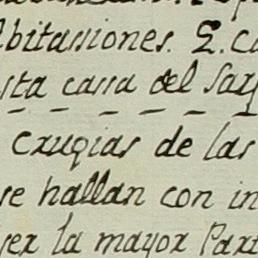 bitassiones. Q. Co
sta cassa del Sar
Crugias de las
se hallan con in
ser la mayor Part